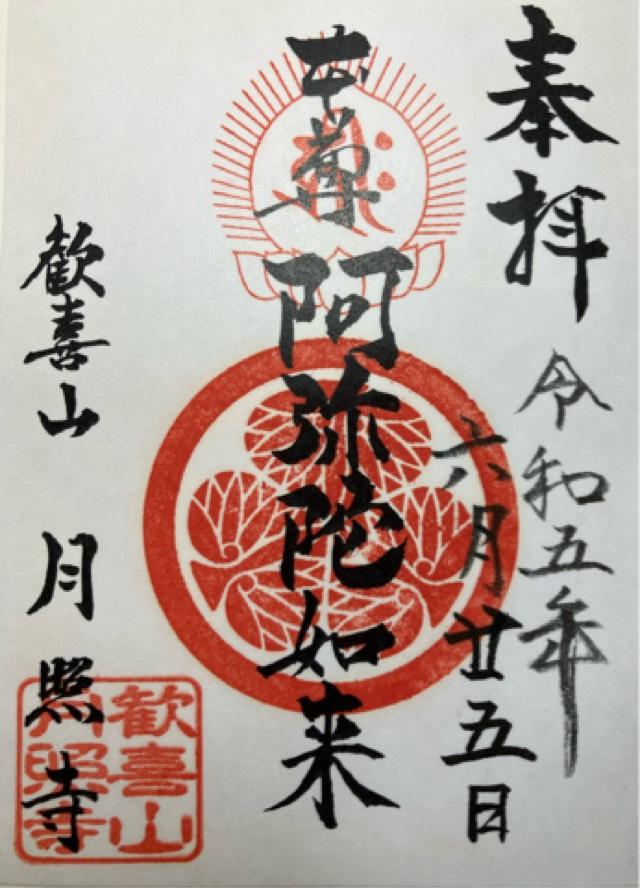 奉拝
令和五年
六月廿五日
本尊
阿弥陀如来
歓喜山 月照寺
歓喜山
月照寺